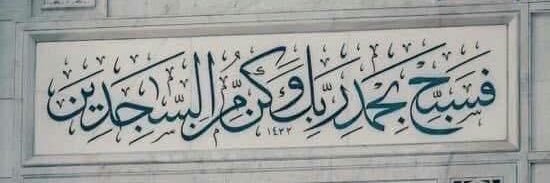 فَسَبِّحْ بِحَمْدِ رَبِّكَ وَكُنْ مِّنَ السَّٰجِدِينَ
١٤٢٢